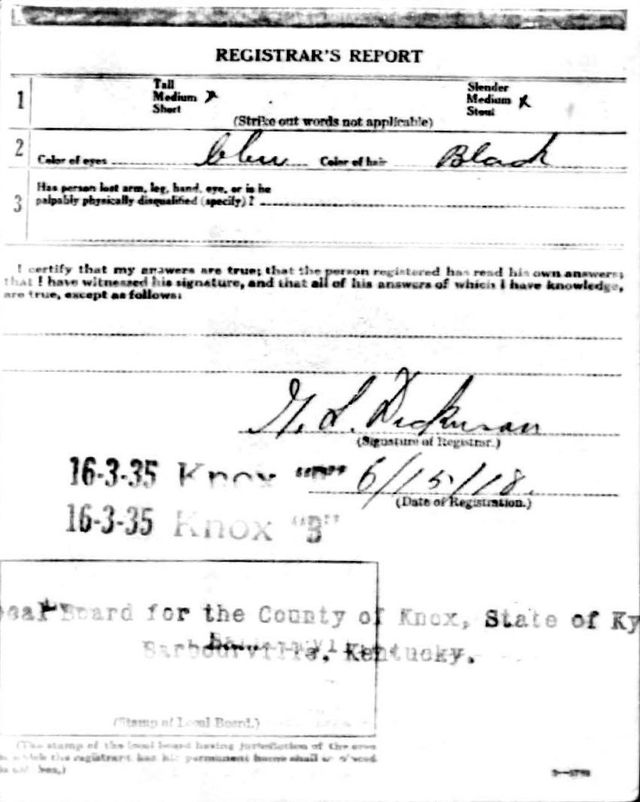 REGISTRAR'S REPORT
1 Tall Slender
Medium x Medium x
Short Stout
(Strike out words not applicable)
2 Color of eyes blue Color of hair Black
3 Has person lost arm, leg, hand, eye, or is he
palpably physically disqualified (specify)?
I certify that my answers are true; that the person registered has read his own answers;
that I have witnessed his signature, and that all of his answers of which I have knowledge,
are true, except as follows:
Dickinson
(Signature of Registrar.)
16-3-35 Knox 6/15/18.
(Date of Registration.)
16-3-35 Knox "B"
Board for the County of Knox, State of Ky
Barbourville, Kentucky.
(Stamp of Local Board.)
(The stamp of the local board having jurisdiction of the area
the registrant has his permanent home shall be